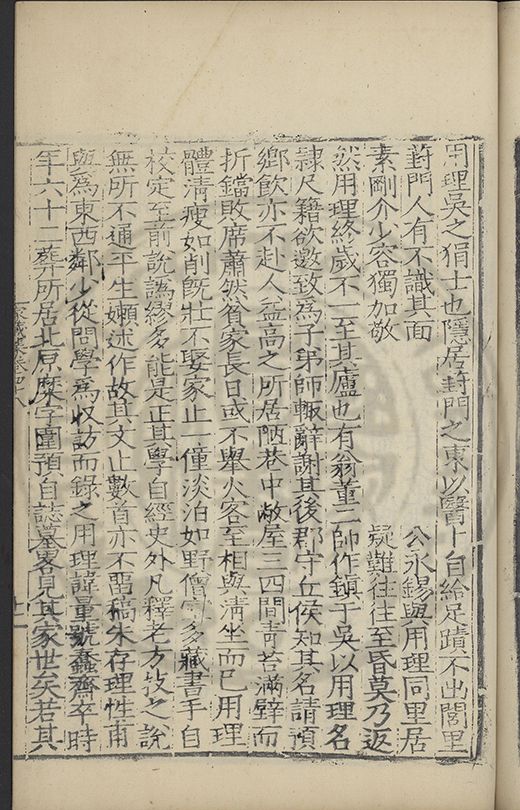 用理吳之狷士也隱居葑門之東以醫卜自給足蹟不出閭里
葑門人有不識其面 公永錫與用理同里居
素剛介少容獨加敬 疑難往往至昏莫乃返
然用理終歲不一至其廬也有翁董二帥作鎮于吳以用理名
隸尺籍欲邀致為子弟師輙辭謝其後郡守丘侯知其名請預
鄉飲亦不赴人益高之所居陋巷中敝屋三四間青苔滿壁而
折鐺敗席蕭然貧家長日或不舉火客至相與淸坐而已用理
體清瘦如削旣壯不娶家止一僮淡泊如野僧 多藏書手自
校定至前說譌繆多能是正其學自經史外凡釋老方技之說
無所不通平生嬾述作故其文止數首亦不畱稿朱存理性甫
與為東西鄰少從問學為收訪而錄之用理諱量號蠢齋卒時
年六十二葬所居北原麋字圍預自誌墓畧見其家世矣若其